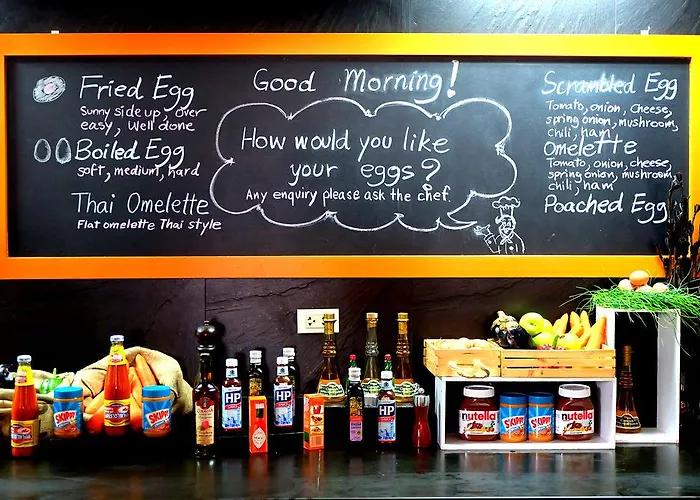 Good Morning!
How would you like
your eggs?
Any enquiry please ask the chef.
Fried Egg
Sunny side up, over
easy, well done
Boiled Egg
soft, medium, hard
Thai Omelette
Flat omelette Thai style
Scrambled Egg
Tomato, onion, cheese,
spring onion, mushroom,
chili, ham
Omelette
Tomato, onion, cheese,
spring onion, mushroom,
chili, ham
Poached Egg
SKIPPY
SKIPPY
HP
HP
HP
nutella
SKIPPY
SKIPPY
nutella